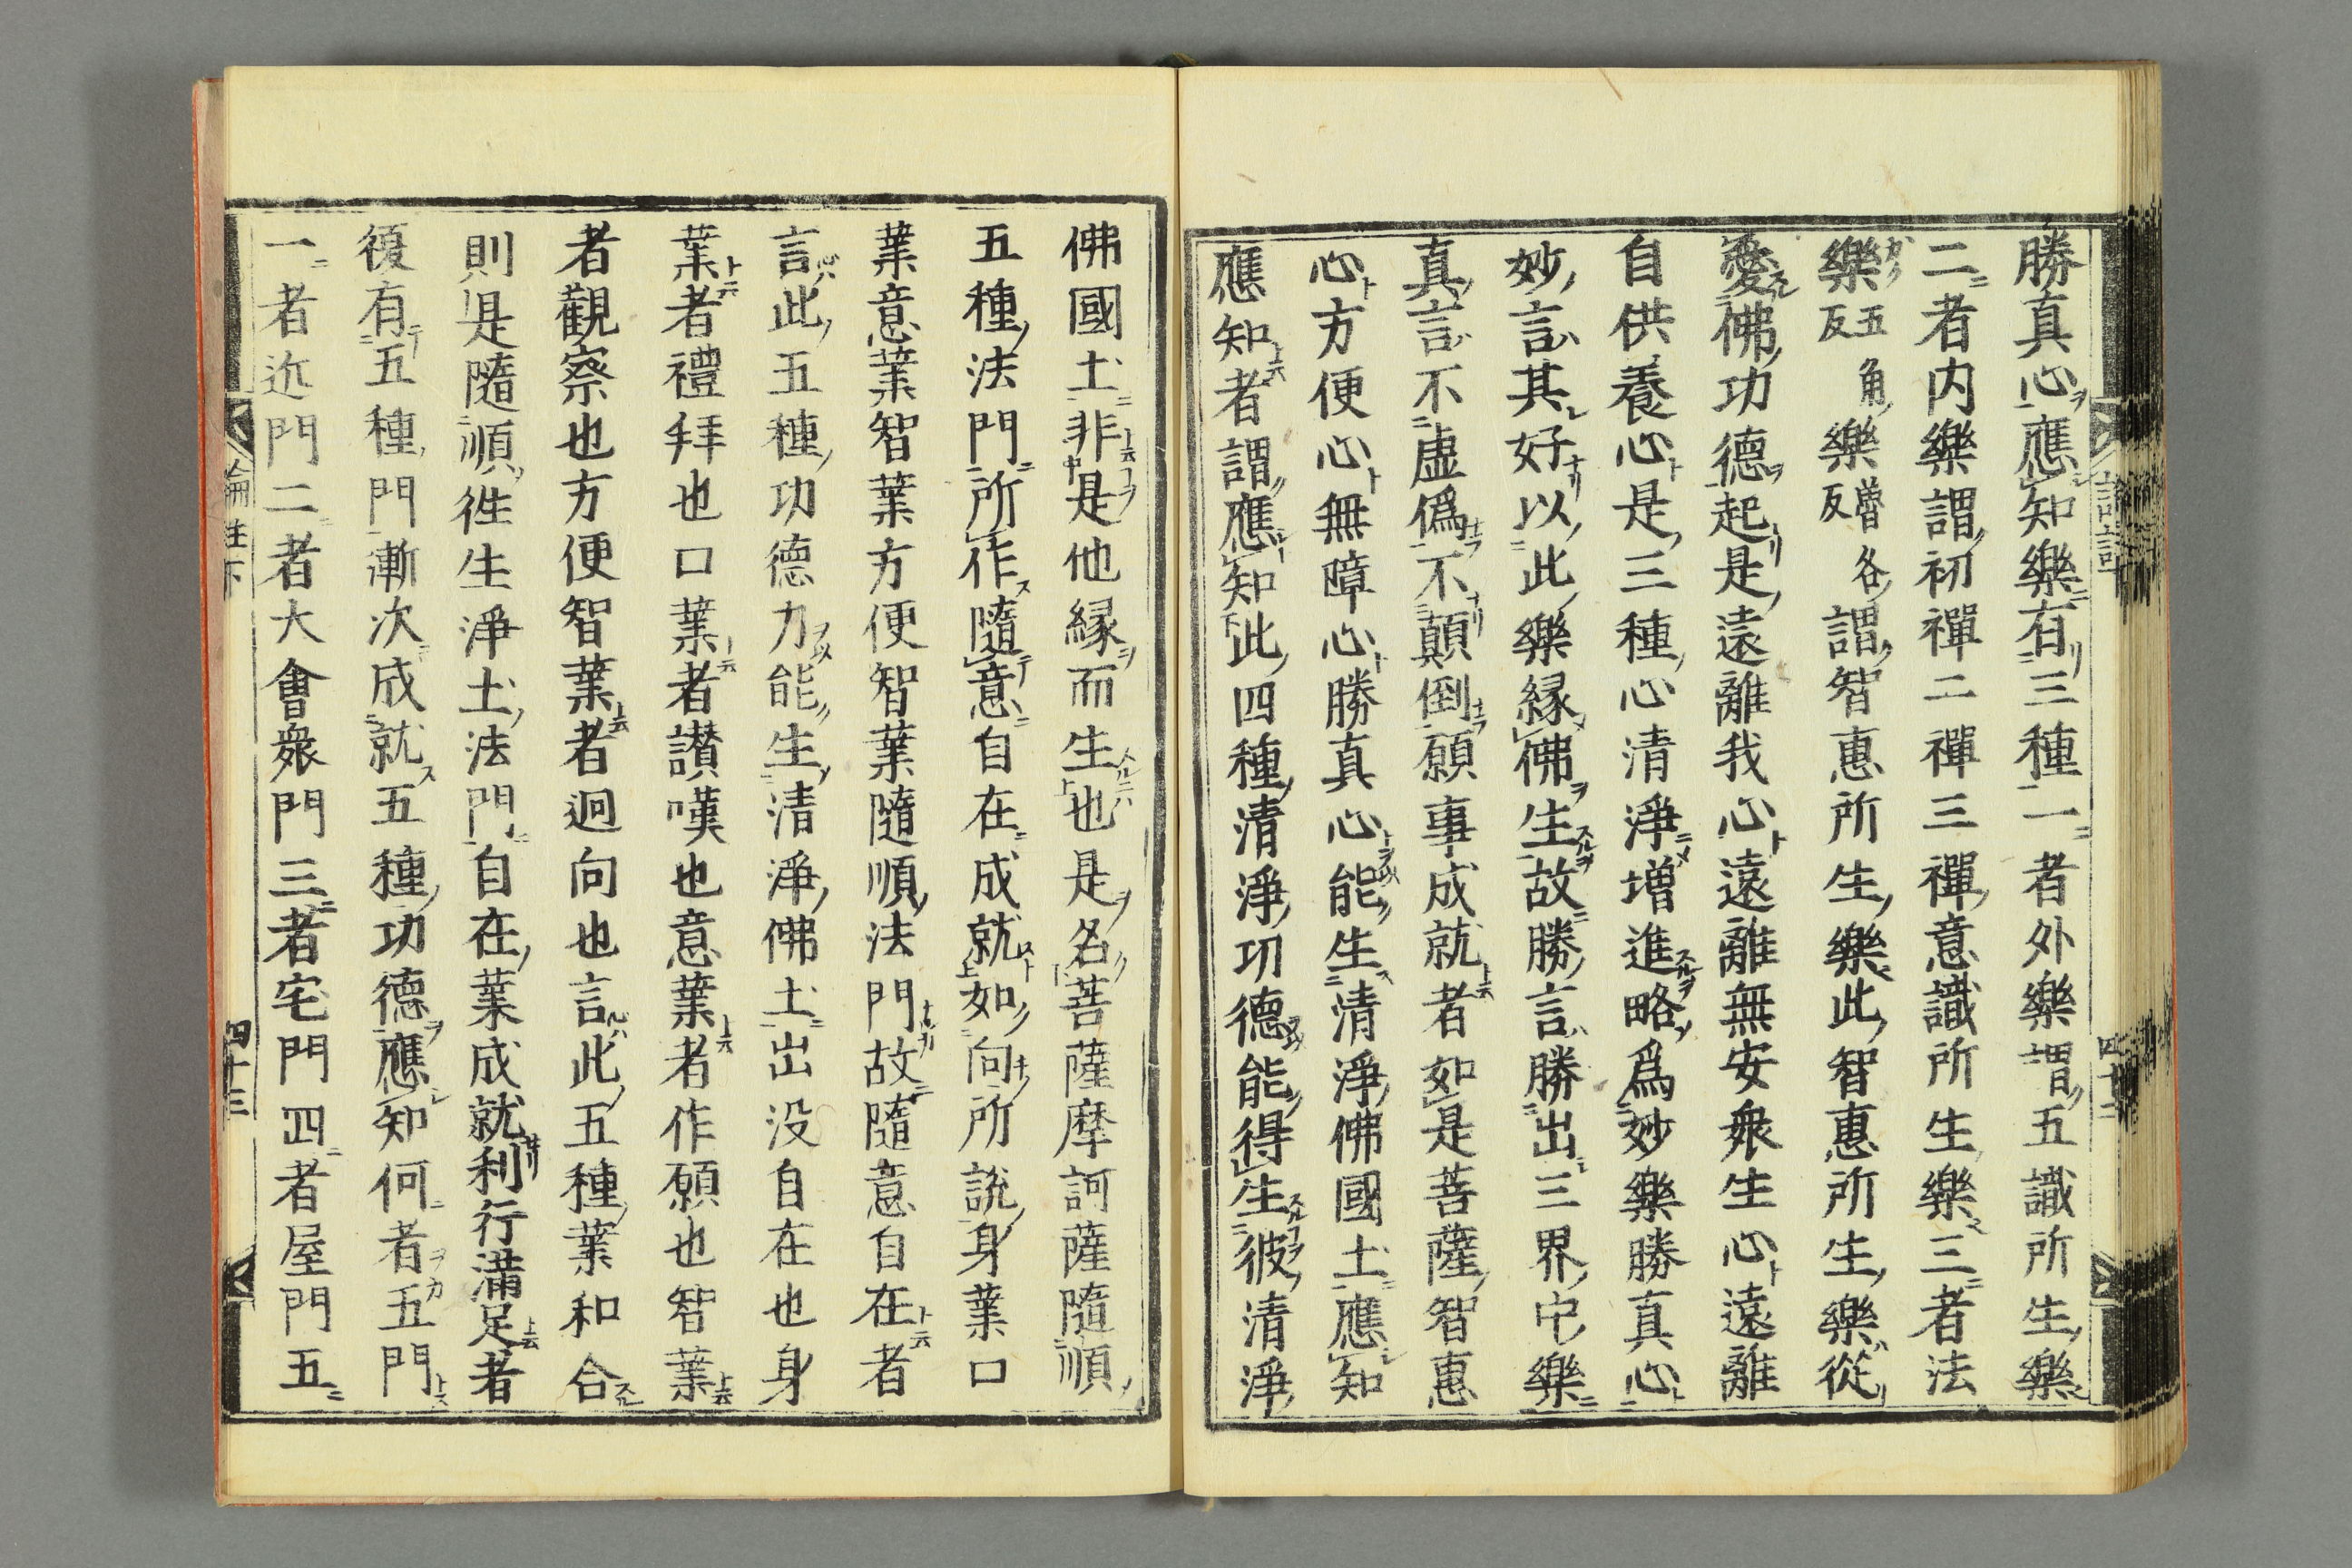 勝真心應知樂有三種一者外樂謂五識所生樂
二者内樂謂初禪二禪三禪意識所生樂三者法
樂五角反樂魯各反謂智惠所生樂此智惠所生樂從
愛佛功德起是遠離我心遠離無安衆生心遠離
自供養心是三種心清淨增進略爲妙樂勝真心
妙言其好以此樂縁佛生故勝言勝出三界中樂
真言不虚僞不顛倒願事成就者如是菩薩智惠
心方便心無障心勝真心能生清淨佛國土應知
應知者謂應知此四種清淨功德能得生彼清淨
佛國土非是他縁而生也是名菩薩摩訶薩隨順
五種法門所作隨意自在成就如向所説身業口
業意業智業方便智業隨順法門故隨意自在者
言此五種功德力能生清淨佛土出没自在也身
業者禮拜也口業者讃嘆也意業者作願也智業
者觀察也方便智業者迴向也言此五種業和合
則是隨順往生淨土法門自在業成就利行滿足者
復有五種門漸次成就五種功德應知何者五門
一者近門二者大會衆門三者宅門四者屋門五
論註下
四十三